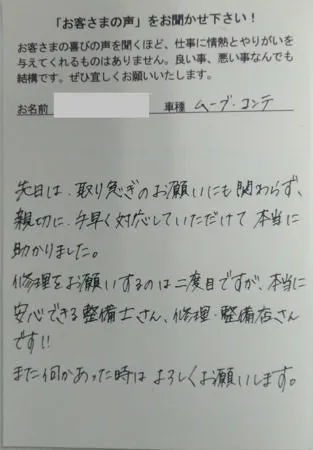 「お客さまの声」をお聞かせ下さい！
お客さまの喜びの声を聞くほど、仕事に情熱とやりがいを
与えてくれるものはありません。良い事、悪い事なんでも
結構です。ぜひ宜しくお願いいたします。
お名前 車種 ムーブ・コンテ
先日は、取り急ぎのお願いにも関わらず、
親切に、手早く対応していただけて本当に
助かりました。
修理をお願いするのは二度目ですが、本当に
安心できる整備士さん、修理・整備店さん
です!!
また何かあった時はよろしくお願いします。